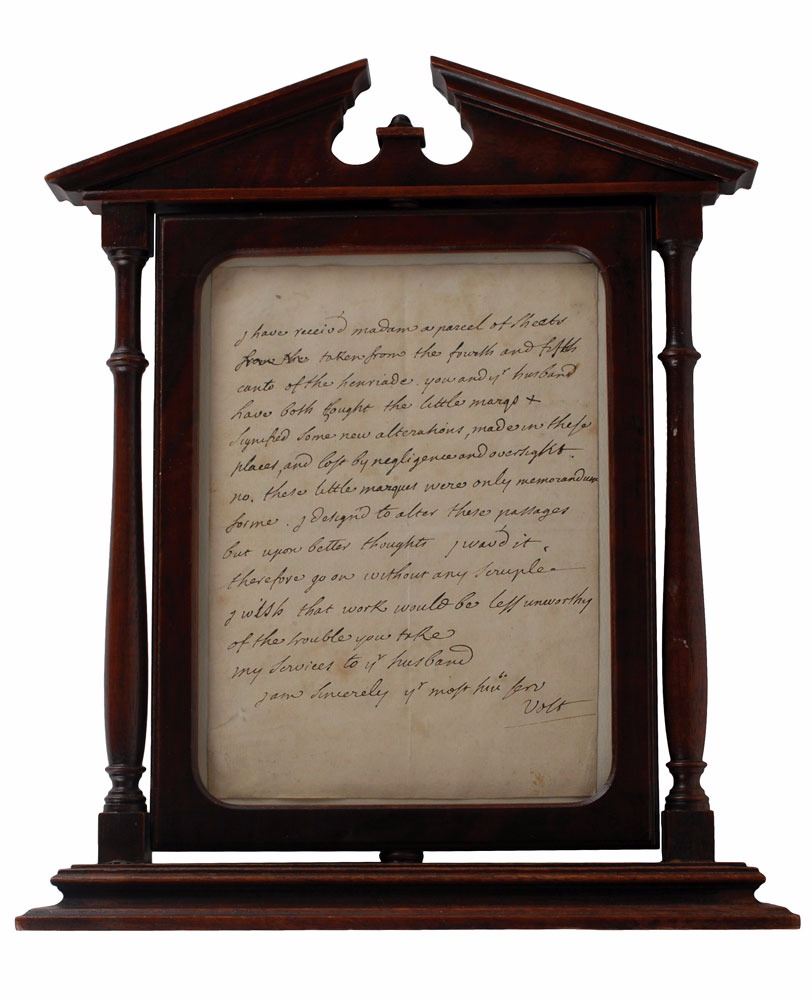 j have receiv'd madam a parcel of sheets
from the taken from the fourth and fifth
canto of the henriade. you and yr husband
have both thought the little marqs +
signified some new alterations, made in these
places, and lost by negligence and oversight.
no. these little marques were only memorandum
for me. j design'd to alter these passages
but upon better thoughts j wav'd it
therefore go on without any scruple.
j wish that work would be less unworthy
of the trouble you take
my services to yr husband
j am sincerely yr most hum serv
Volt